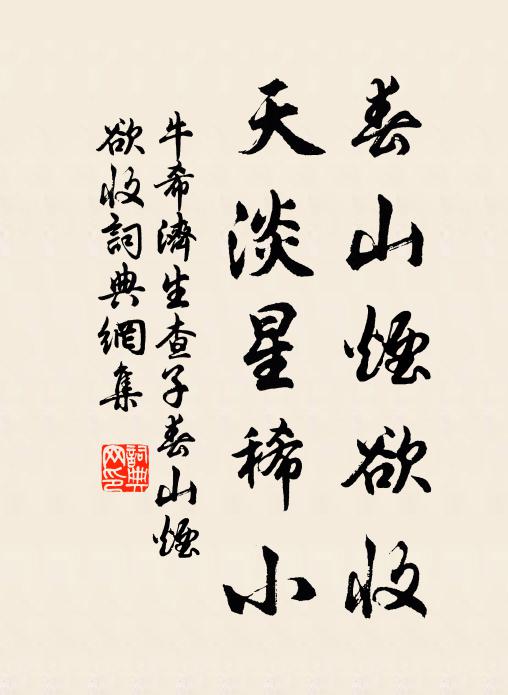 春山煙欲收
天淡星稀小
牛希濟生查子春山煙
欲收詞典網集
詞典网印